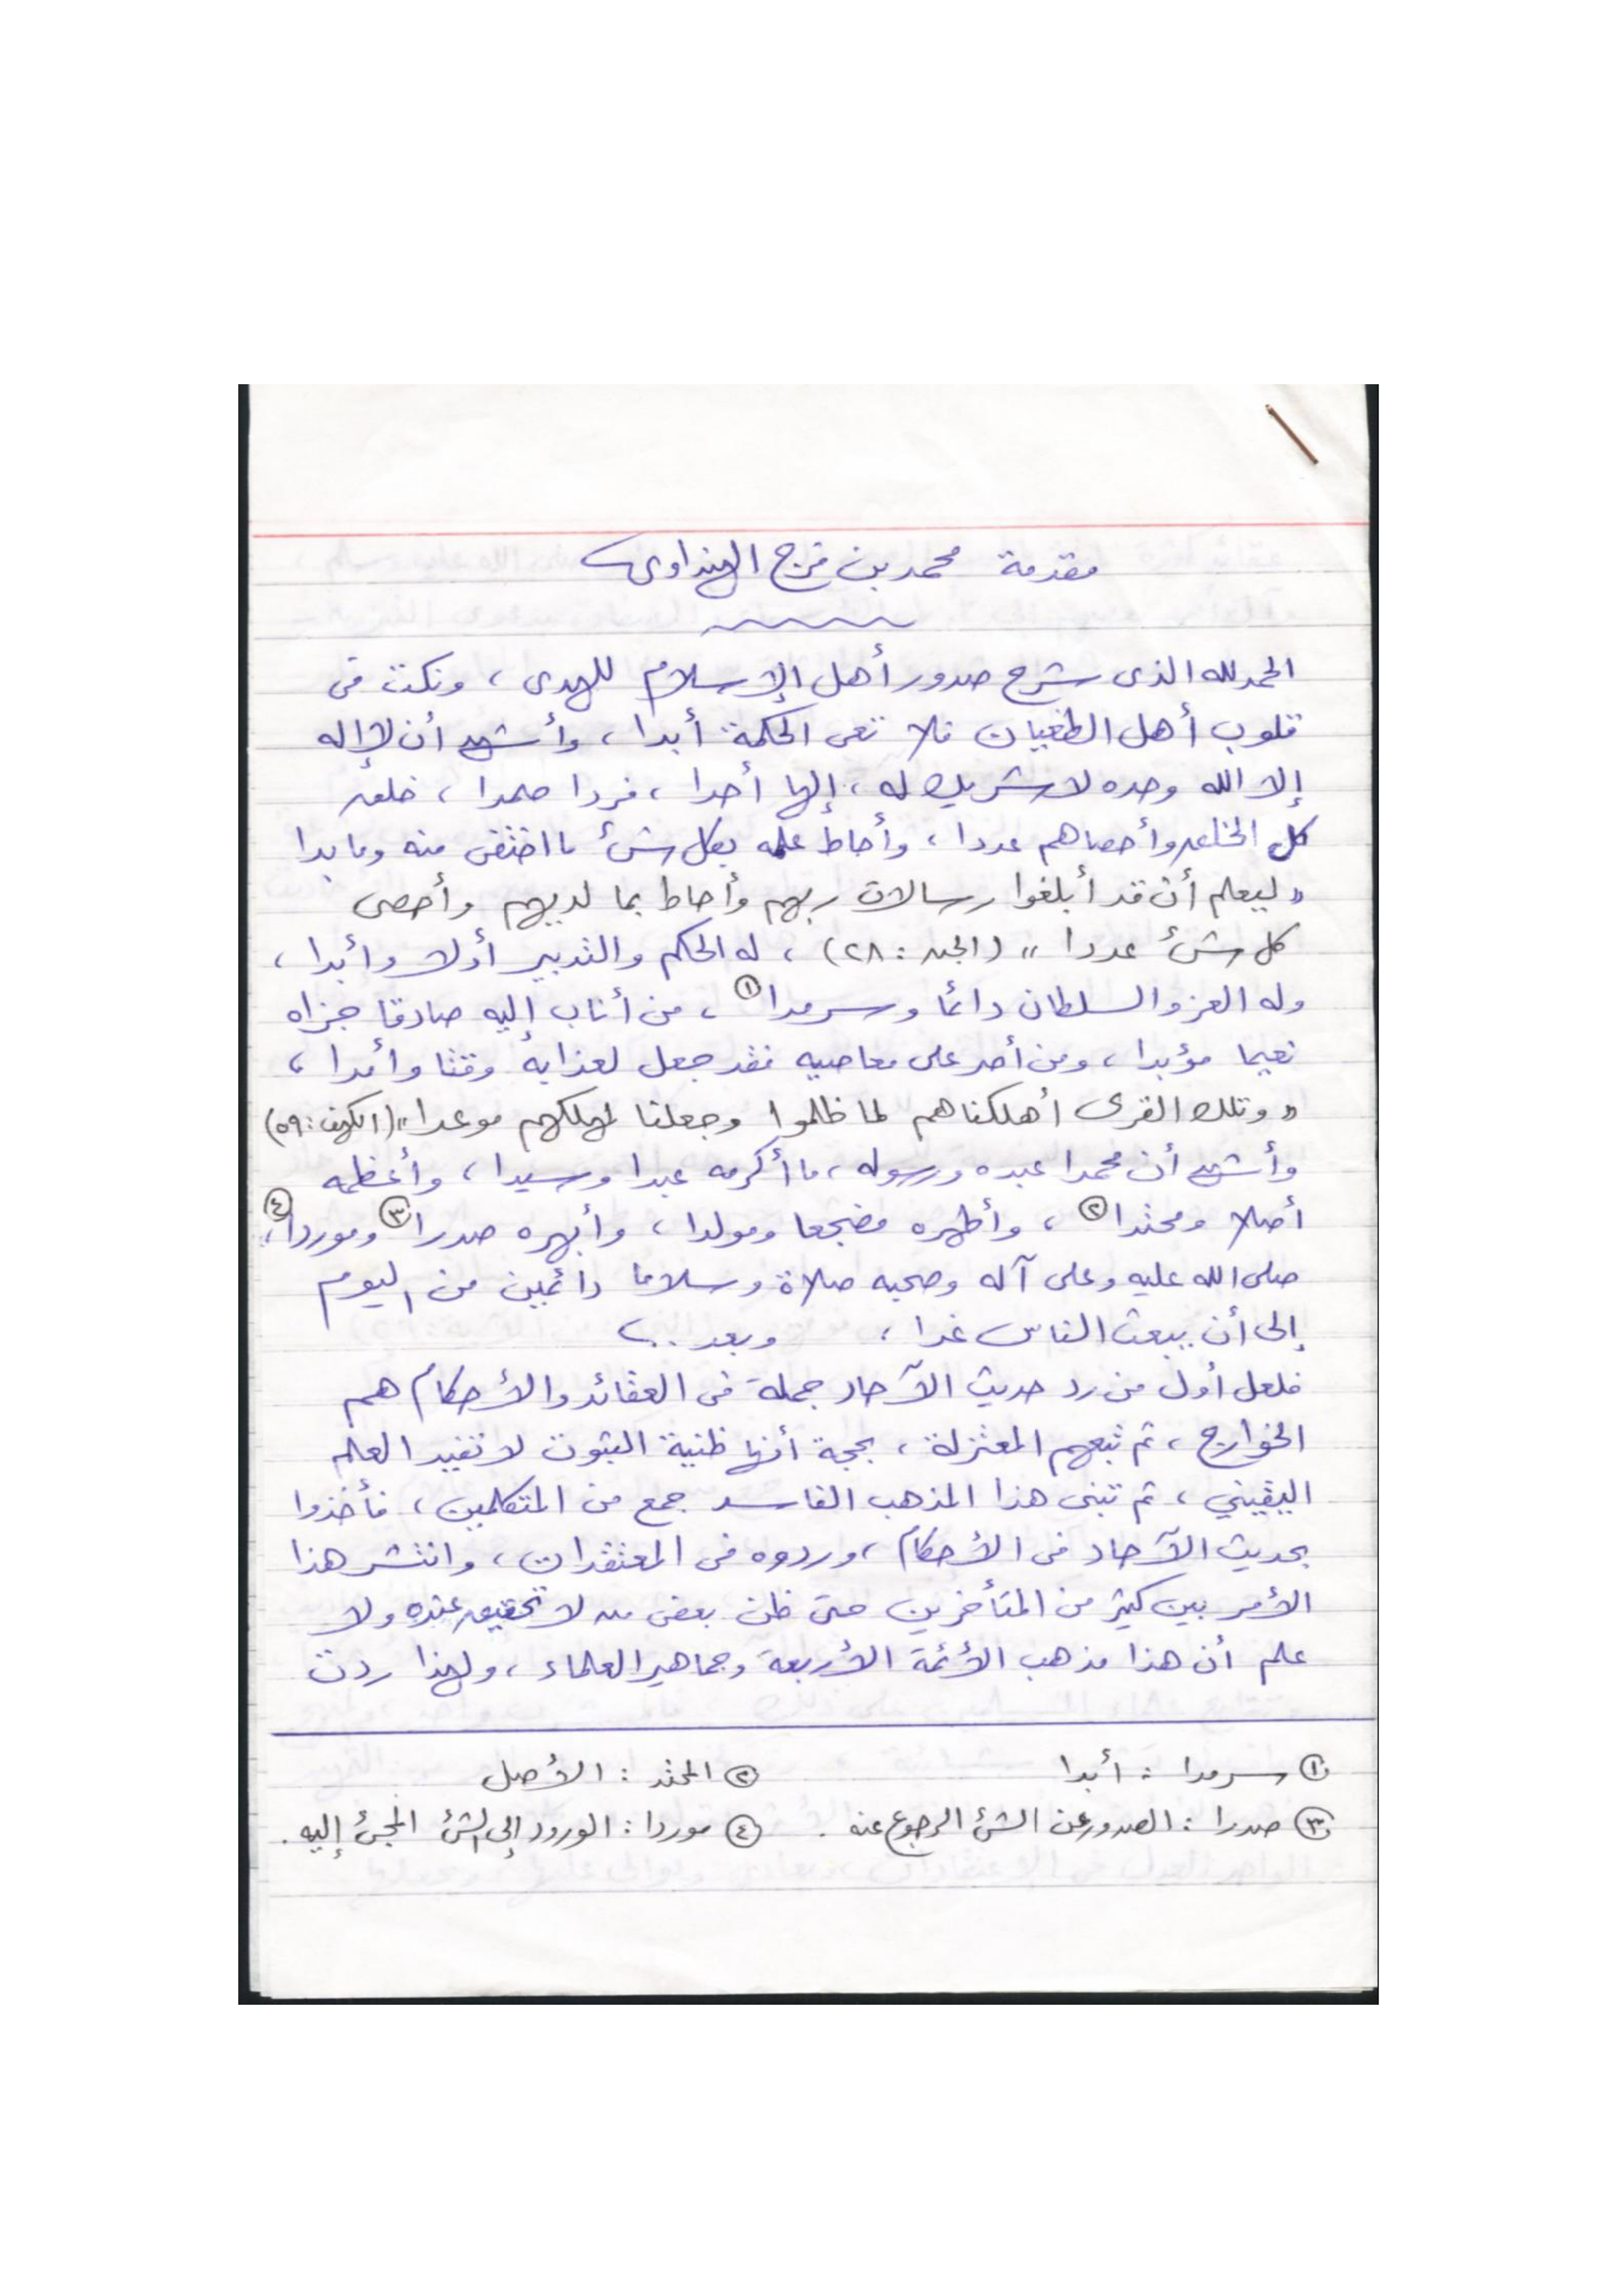 مقدمة محمد بن فرج الهنداوى
الحمد لله الذى شرح صدور أهل الإسلام للهدى ، ونكت فى
قلوب أهل الطغيان فلا تعى الحكمة أبدا ، وأشهد أن لا إله
إلا الله وحده لا شريك له ، إلها أحدا ، فردا صمدا ، خلق
كل الخلق وأحصاهم عددا ، وأحاط علمه بكل شئ ما اختفى منه وما بدا
« ليعلم أن قد أبلغوا رسالات ربهم وأحاط بما لديهم وأحصى
كل شئ عددا » (الجن : ٢٨) ، له الحكم والتدبير أولا وأبدا ،
وله العز والسلطان دائما وسرمدا ① ، من أناب إليه صادقا جزاه
نعيما مؤبدا ، ومن أصر على معاصيه فقد جعل لعذابه وقتا وأمدا ،
« وتلك القرى أهلكناهم لما ظلموا وجعلنا لمهلكهم موعدا » (الكهف : ٥٩)
وأشهد أن محمدا عبده ورسوله ، ما أكرمه عبدا وسيدا ، وأعظمه
أصلا ومحتدا ② ، وأطهره مضجعا ومولدا ، وأبهره صدرا ③ وموردا ④ ،
صلى الله عليه وعلى آله وصحبه صلاة وسلاما دائمين من اليوم
إلى أن يبعث الناس غدا ، وبعد ..
فلعل أول من رد حديث الآحاد جملة فى العقائد والأحكام هم
الخوارج ، ثم تبعهم المعتزلة ، بحجة أنها ظنية الثبوت لا تفيد العلم
اليقيني ، ثم تبنى هذا المذهب الفاسد جمع من المتكلمين ، فأخذوا
بحديث الآحاد فى الأحكام ، وردوه فى المعتقدات ، وانتشر هذا
الأمر بين كثير من المتأخرين حتى ظن بعض من لا تحقيق عنده ولا
علم أن هذا مذهب الأئمة الأربعة وجماهير العلماء ، ولهذا ردت
① سرمدا : أبدا ② المحتد : الأصل
③ صدرا : الصدور عن الشئ الرجوع عنه . ④ موردا : الورود إلى الشئ المجئ إليه .